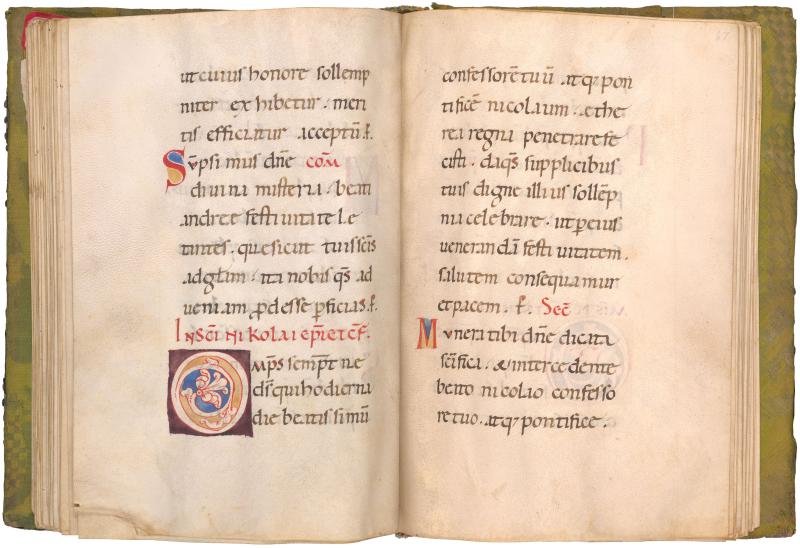 ut cuius honore sollemp
niter exhibetur. meri
tis efficiatur acceptū. f.
Sūpsimus dn̄e com̄
diuina misteria. beati
andreę festiuitate lę
tantes. que sicut tuis scīs
ad glām. ita nobis qs̄ ad
ueniam ꝓdesse ꝑficias. f.
IN SCĪ NIKOLAI EP̄I ET CF̄.
OMP̄S sempit̄ne
ds̄ qui hodierna
die beatissimū
67
confessorē tuū. atq; pon
tificē nicolaum. ethe
rea regna penetrare fe
cisti. da qs̄ supplicibus
tuis digne illius sollēp
nia celebrare. ut ꝑ eius
uenerandā festiuitatem.
salutem consequamur
et pacem. f. Sec̄
Munera tibi dn̄e dicata
sc̄ifica. & intercedente
beato nicolao confesso
re tuo. atq; pontifice.